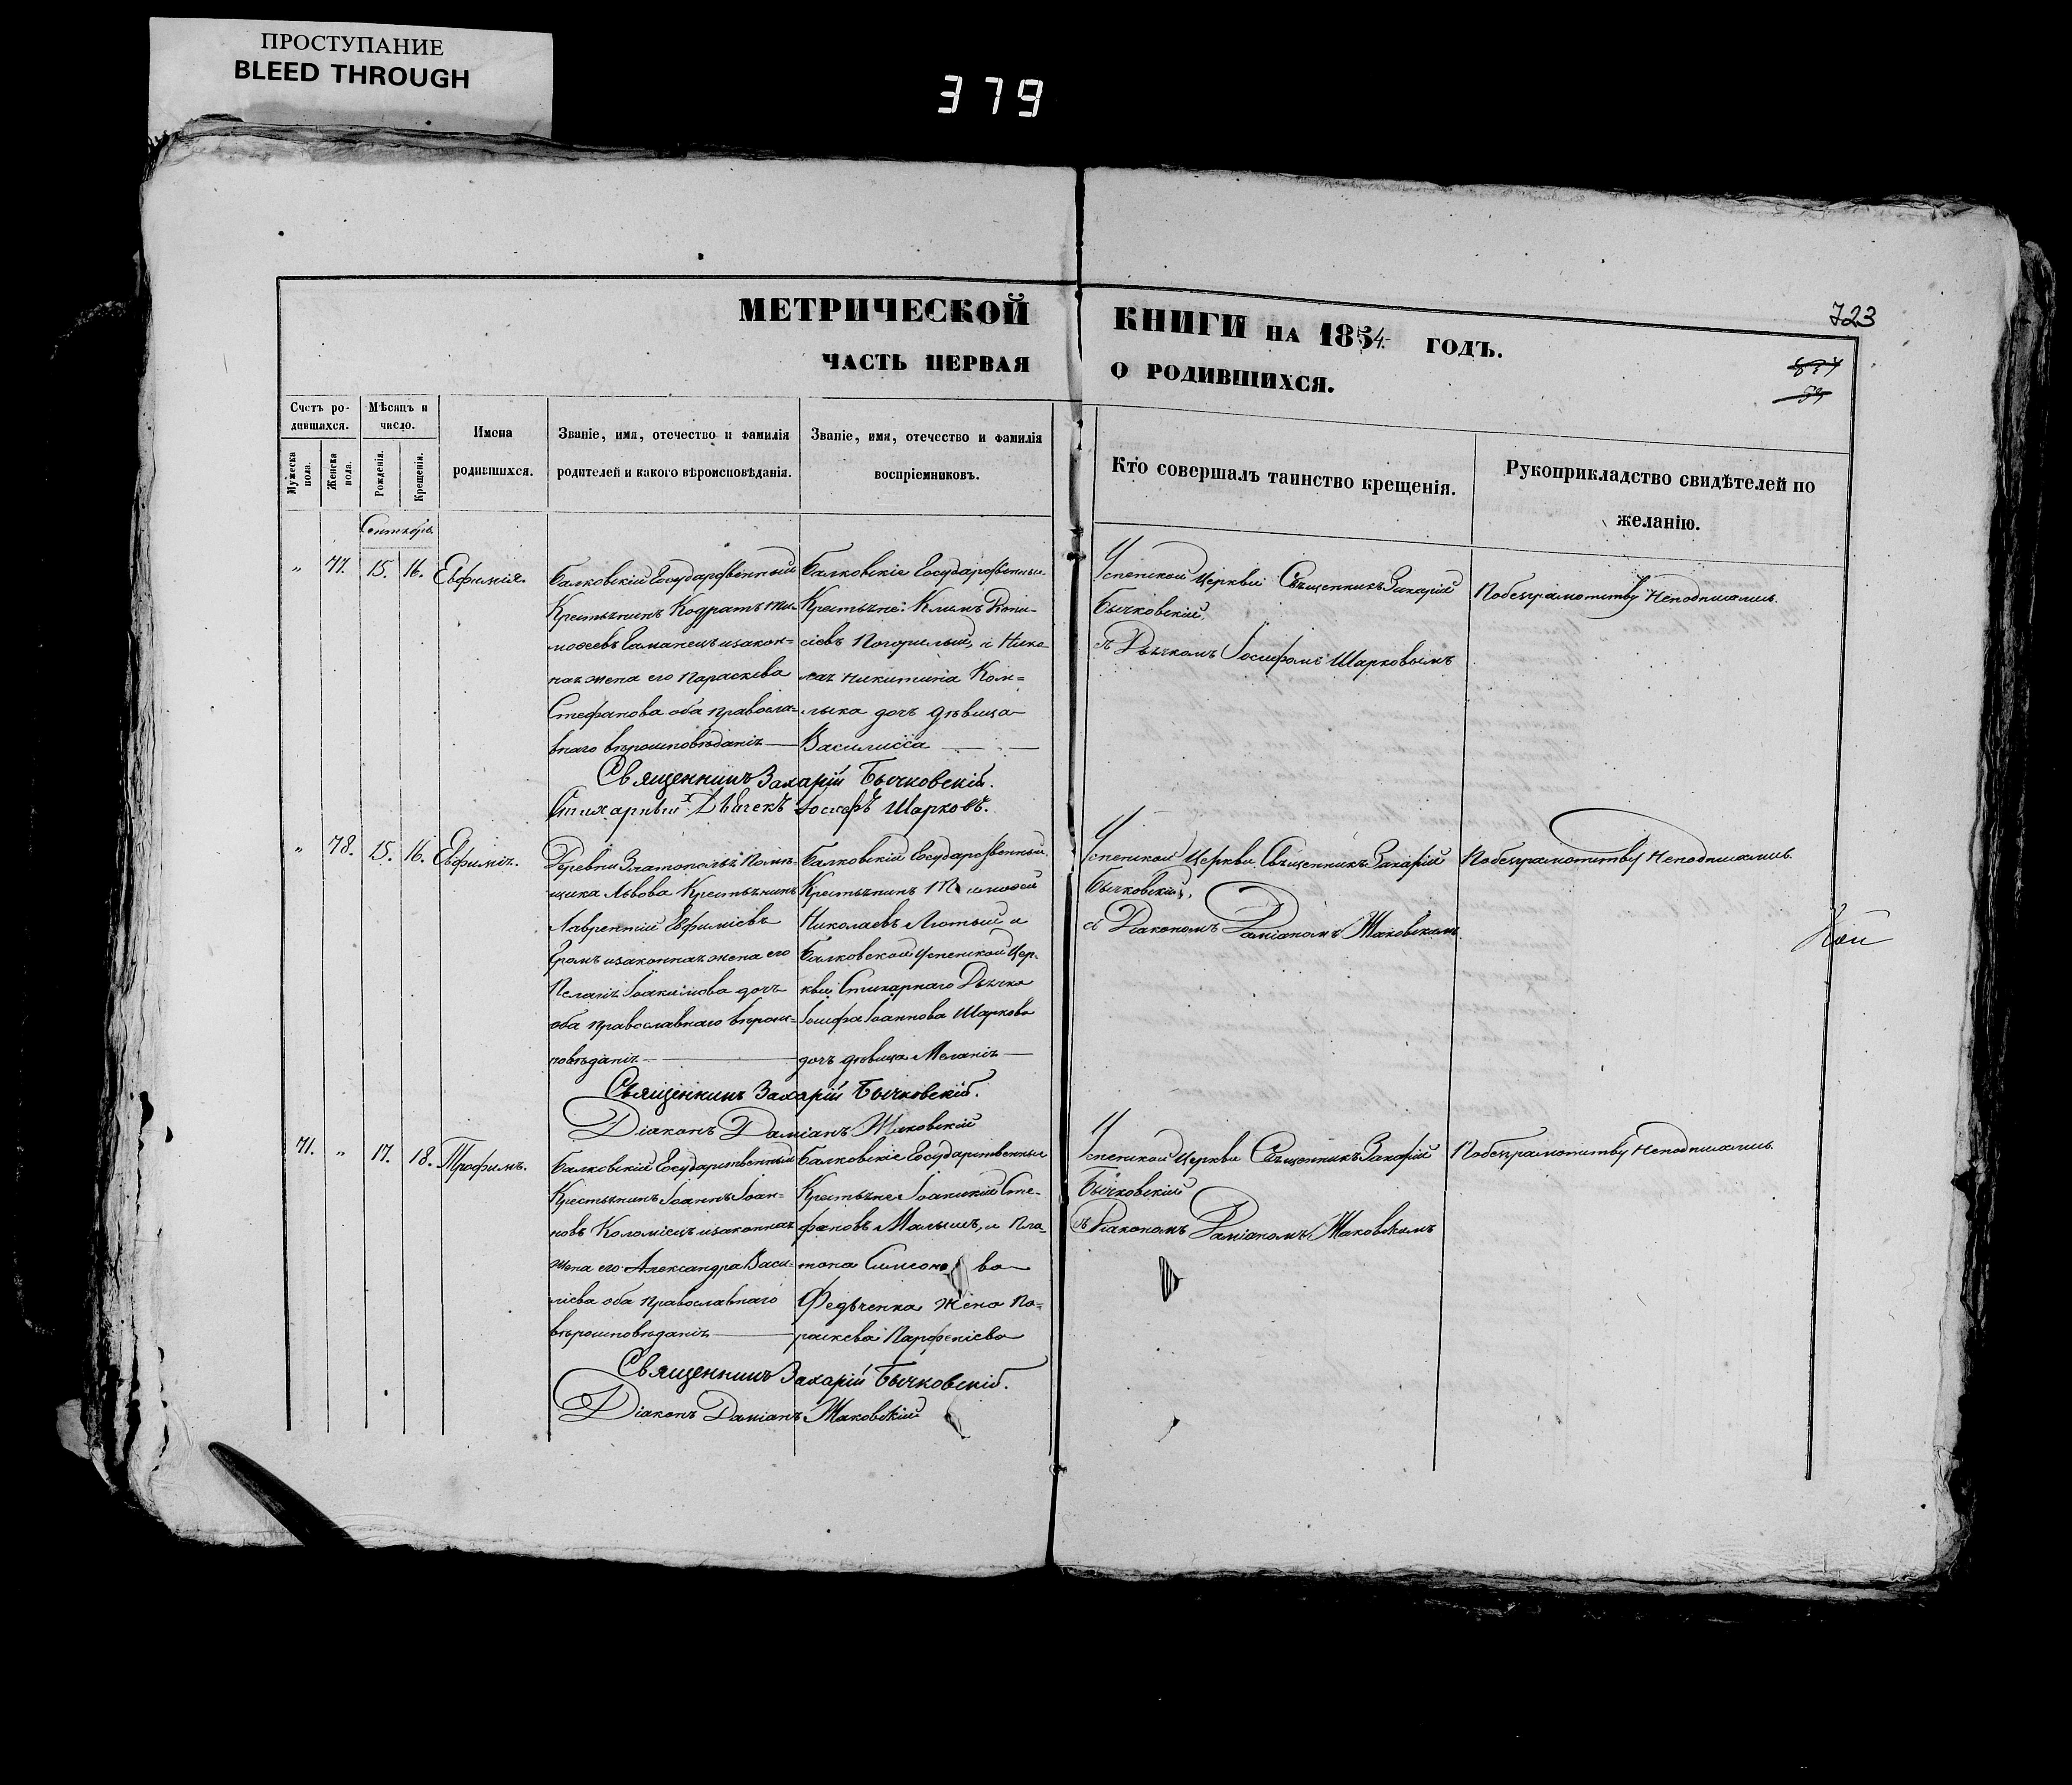 ПРОСТУПАНИЕ
BLEED THROUGH
379
723
МЕТРИЧЕСКОЙ КНИГИ НА 1854 ГОДЪ.
ЧАСТЬ ПЕРВАЯ О РОДИВШИХСЯ.
Счетъ ро-
дившихся.
Мужеска пола.
Женска пола.
Мѣсяцъ и
число.
Рожденія.
Крещенія.
Имена
родившихся.
Званіе, имя, отечество и фамилія
родителей и какого вѣроисповѣданія.
Званіе, имя, отечество и фамилія
воспріемниковъ.
Кто совершалъ таинство крещенія.
Рукоприкладство свидѣтелей по
желанію.
Сентябрь
" 77. 15. 16. Евфимія.
Балковскій Государственный
Крестьянинъ Кодратъ Ти-
моѳеевъ Гаманецъ и закон=
ная жена его Параскева
Стефанова оба правосла=
внаго вѣроисповѣданія
Балковскіе Государственные
Крестьяне: Климъ Діони-
сіевъ Погорилый, и Нико-
лая Никитина Ком=
лыка дочь дѣвица
Василисса
Успенской Церкви Священникъ Захарій
Бычковскій.
съ Дьячкомъ Іосифомъ Шарковымъ
По безграмотству неподписались.
Священникъ Захарій Бычковскій.
Стихарный Дьячекъ Іосифъ Шарковъ.
" 78. 15. 16. Евфимія.
Деревни Златополья Помѣ-
щика Львова Крестьянинъ
Лаврентій Евфиміевъ
Громъ и законная жена его
Пелагія Іоакимова дочь
оба православнаго вѣроис=
повѣданія
Балковскій Государственный
Крестьянинъ Тимоѳей
Николаевъ Лютый и
Балковской Успенской Цер-
кви Стихарнаго Дьячка
Іосифа Іоаннова Шаркова
дочь дѣвица Меланія
Успенской Церкви Священникъ Захарій
Бычковскій,
съ Діакономъ Даміаномъ Маковскимъ
По безграмотству Неподписались.
Священникъ Захарій Бычковскій.
Діаконъ Даміанъ Маковскій
71. " 17. 18. Трофимъ.
Балковскій Государственный
Крестьянинъ Іоаннъ Іоан=
новъ Коломіецъ и законная
жена его Александра Васи=
ліева оба православнаго
вѣроисповѣданія
Балковскіе Государственные
Крестьяне Іоаникій Сте-
фановъ Малышъ, и Пла-
тона Симоно ва
Федьченка жена Па=
раскева Парфеніева
Успенской Церкви Священникъ Захарій
Бычковскій
съ Діакономъ Даміаномъ Маковскимъ
По безграмотству Неподписались.
Священникъ Захарій Бычковскій.
Діаконъ Даміанъ Маковскій